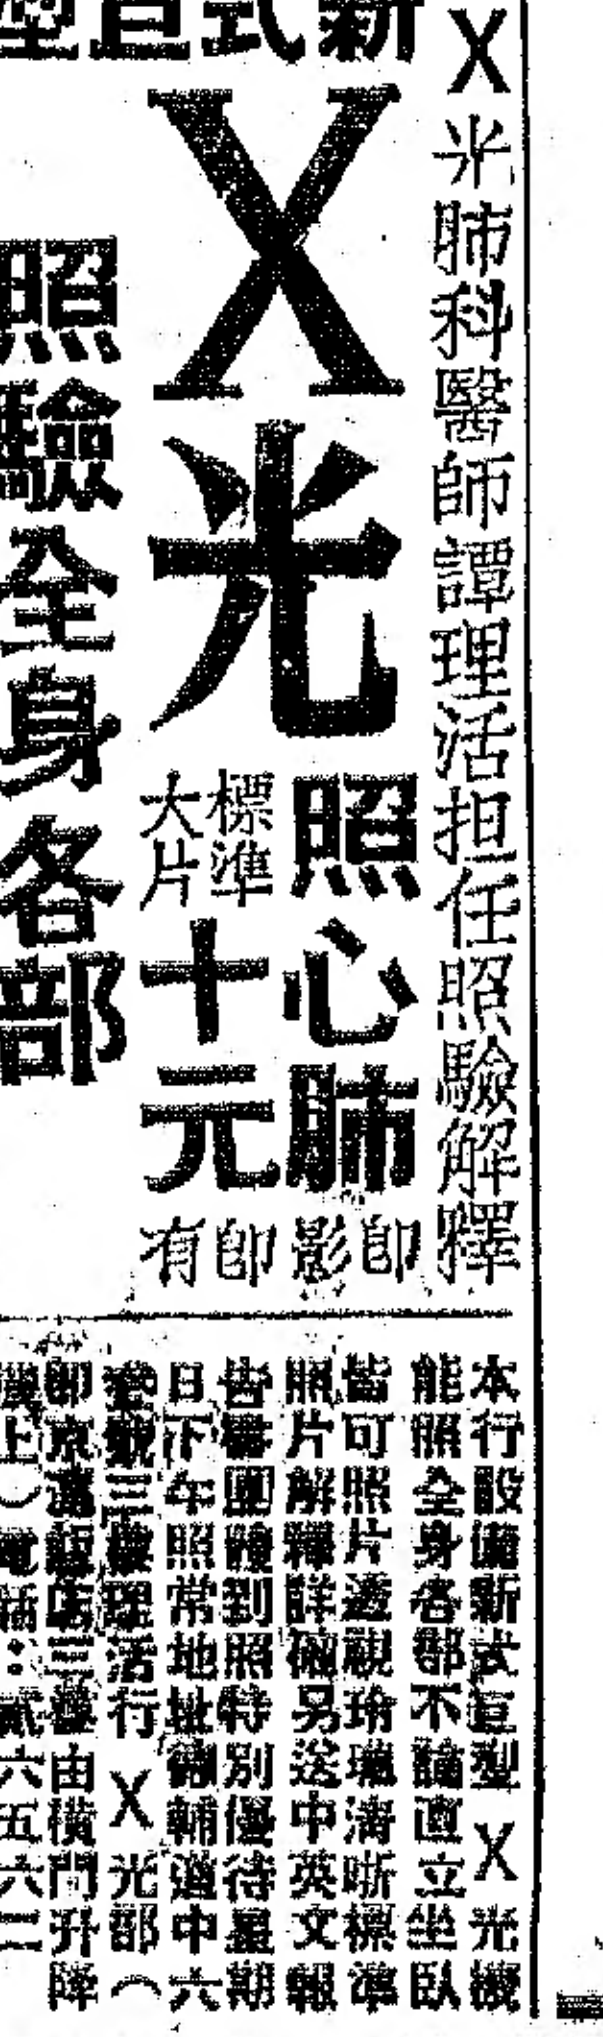 X光肺科醫師譚理活担任照驗解釋
新式巨型
X光
照心肺
即影
標準
大片
十元
即有
照驗全身各部
本行設備新式巨型X光機
能照全身各部不論直立坐臥
皆可照片透視玲瓏清晰標準
照片解釋詳確另送中英文報
告書團體到照特別優待星期
日下午照常地址德輔道中六
號三樓理活行X光部（
即京滬飯店三樓由橫門升降
機上）電話：貳六五六二